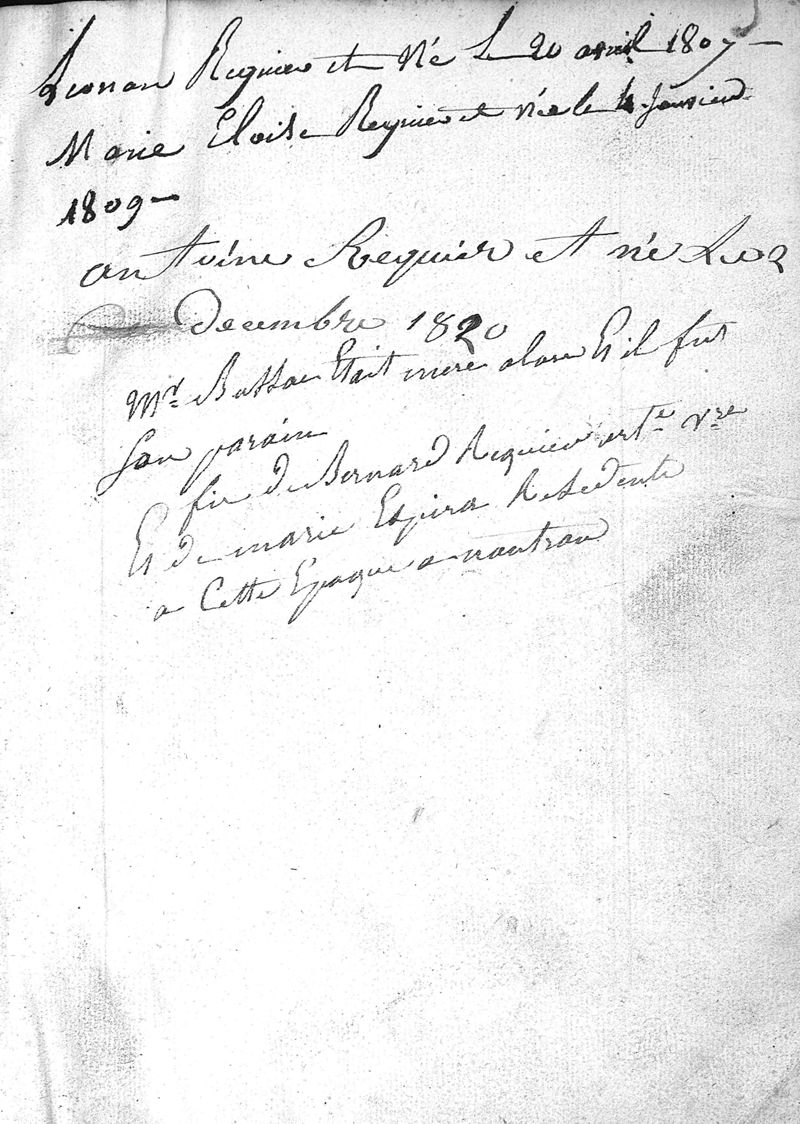 Requier et Né Le 20 avril 1807 –
Marie Eloise Requier et née le 4 Janvier
1809 –
antoine Requier et né Le 2
decembre 1820
Mr. Etait mere alors Et il fut
son parain
fis de Bernard Requier
Et de marie Espira Residente
a Cette Epoque a